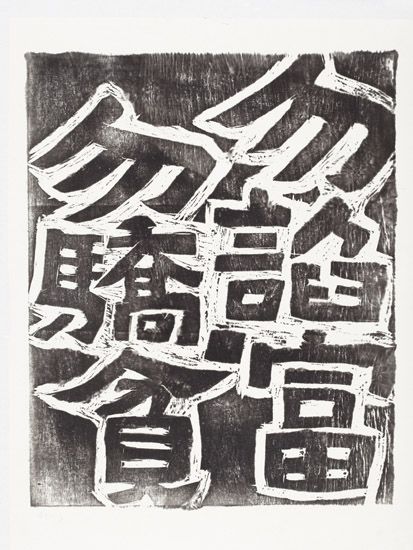 勿諂富
勿驕貧